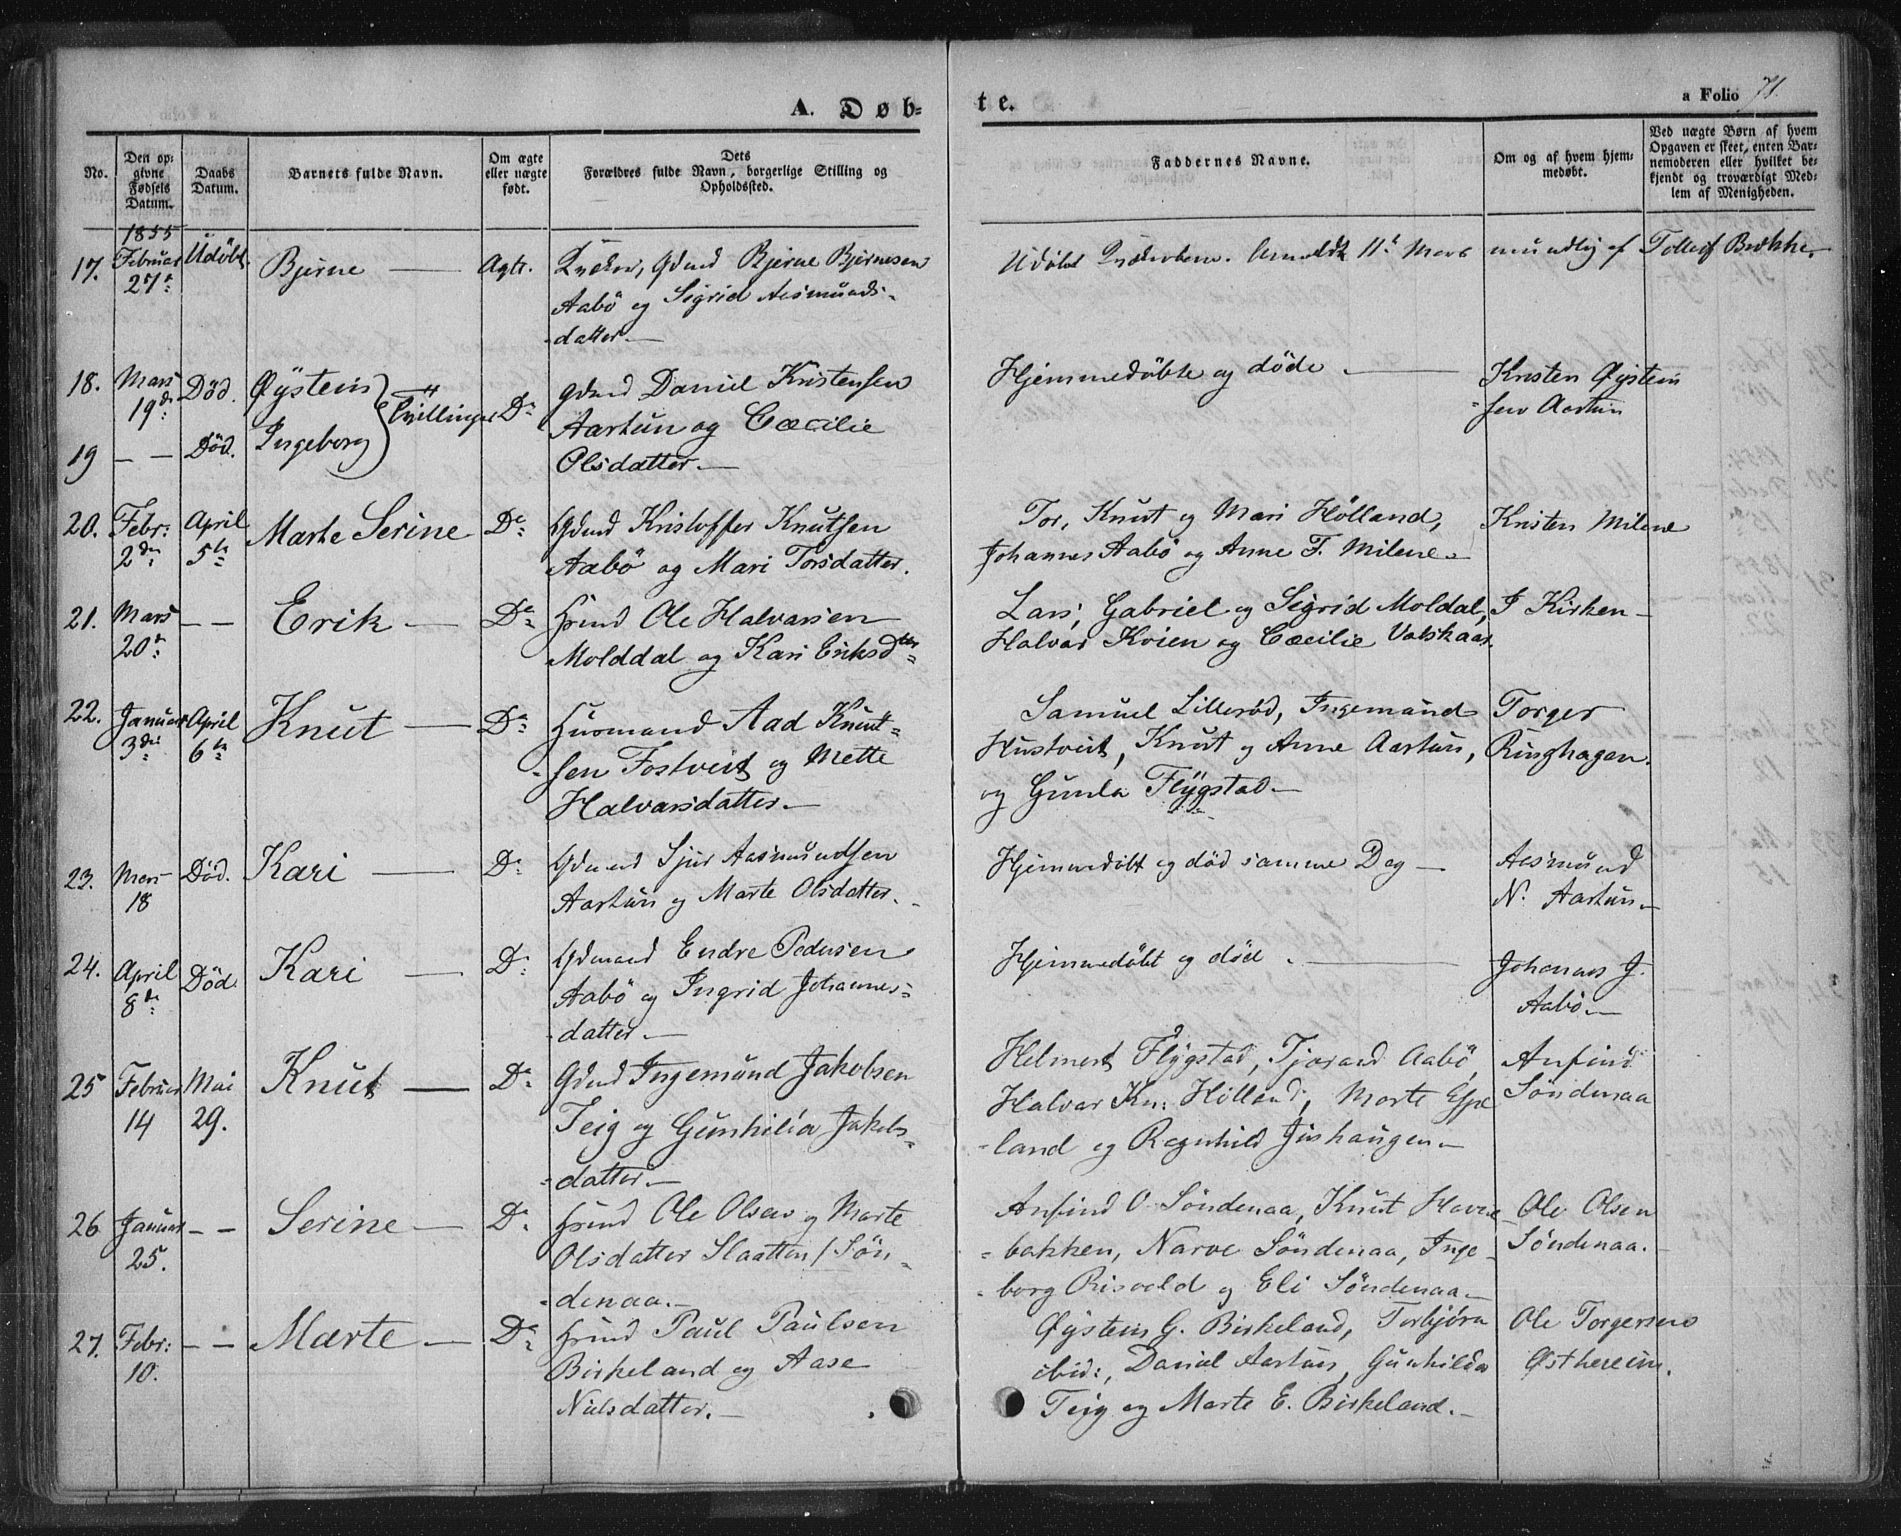 A. Døb-
te.
a Folio 71.
No.
Den op-
givne
Fødsels
Datum.
Daabs
Datum.
Barnets fulde Navn.
Om ægte
eller uægte
født.
Dets
Forældres fulde Navn, borgerlige Stilling og
Opholdssted.
Faddernes Navne.
Om og af hvem hjem-
medøbt.
Ved uægte Børn af hvem
Opgaven er skeet, enten Bar-
nemoderen eller hvilket be-
kjendt og troværdigt Med-
lem af Menigheden.
1855
17. Februar 27de Udöbt. Bjerne — Ægte. Qvæker, Gdmd Bjerne Bjernesen
Aabö og Sigrid Aasmunds-
datter —
Udöbt Qvækerbarn. Anmeldt 11te Mars mundtlig af Tollef Brekke.
18. Mars 19de Död. Øÿstein } Tvillinger Do
19 — — Död. Ingeborg
Gdmd Daniel Kristensen
Aartun og Cæcilie
Olsdatter. —
Hjemmedöbte og döde. —
Kristen Øÿstein
sen Aartun
20. Febr: 2den April 5te Marte Serine Do Gdmd Kristoffer Knutsen
Aabö og Mari Torsdatter.
Tor, Knut og Mari Hölland,
Johannes Aabö og Anne T. Milene. —
Kristen Milene
21. Mars 20de — — Erik — Do Hrmd Ole Halvarsen
Molddal og Kari Eriksdtr
Lars, Gabriel og Sigrid Moldal,
Halvar Kvien og Cæcilie Valskaar.
I Kirken —
22. Januar 3die April 6te Knut — Do Huusmand Aad Knut-
sen Fostveit og Mette
Halvarsdatter. —
Samuel Lilleröd, Ingemund
Hustveit, Knut og Anne Aartun,
og Gunla Flÿgstad —
Torger
Ringhagen.
23. Mars 18 Död. Kari — Do Gdmand Sjur Aasmundsen
Aartun og Marte Olsdatter. —
Hjemmedöbt og död samme Dag —
Aasmund
N. Aartun. —
24. April 8de Död. Kari — Do Gdmand Endre Pedersen
Aabö og Ingrid Johannes-
datter. —
Hjemmedöbt og död. —
Johannes J.
Aabö. —
25 Februar 14 Mai 29. Knut — Do Gdmd Ingemund Jakobsen
Teig og Gunhilda Jakobs-
datter. —
Helmert Flÿgstad, Tjorand Aabö,
Halvar Kn: Hölland, Marte Espe
-land og Ragnhild Jishaugen —
Anfind
Söndenaa
26 Januar 25. — — Serine — Do Hrmd Ole Olsen og Marte
Olsdatter Slaatten / Sön-
denaa. —
Anfind O. Söndenaa, Knut Havre
-bakken, Narve Söndenaa, Inge-
-borg Risvold og Eli Söndenaa —
Ole Olsen
Söndenaa.
27. Febr: 10. — — Marte — Do Hrmd Paul Paulsen
Birkeland og Aase
Nielsdatter. —
Øÿstein G. Birkeland, Torbjörn
ibid:, Daniel Aartun, Gunhilda
Teig og Marte E. Birkeland. —
Ole Torgersen
Østhereim.